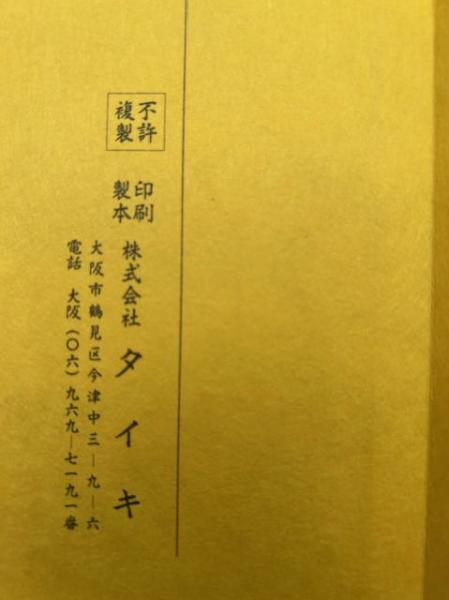 不許
複製
印刷
製本
株式会社 タイキ
大阪市鶴見区今津中三―九―六
電話 大阪(〇六)九六九―七一九一番